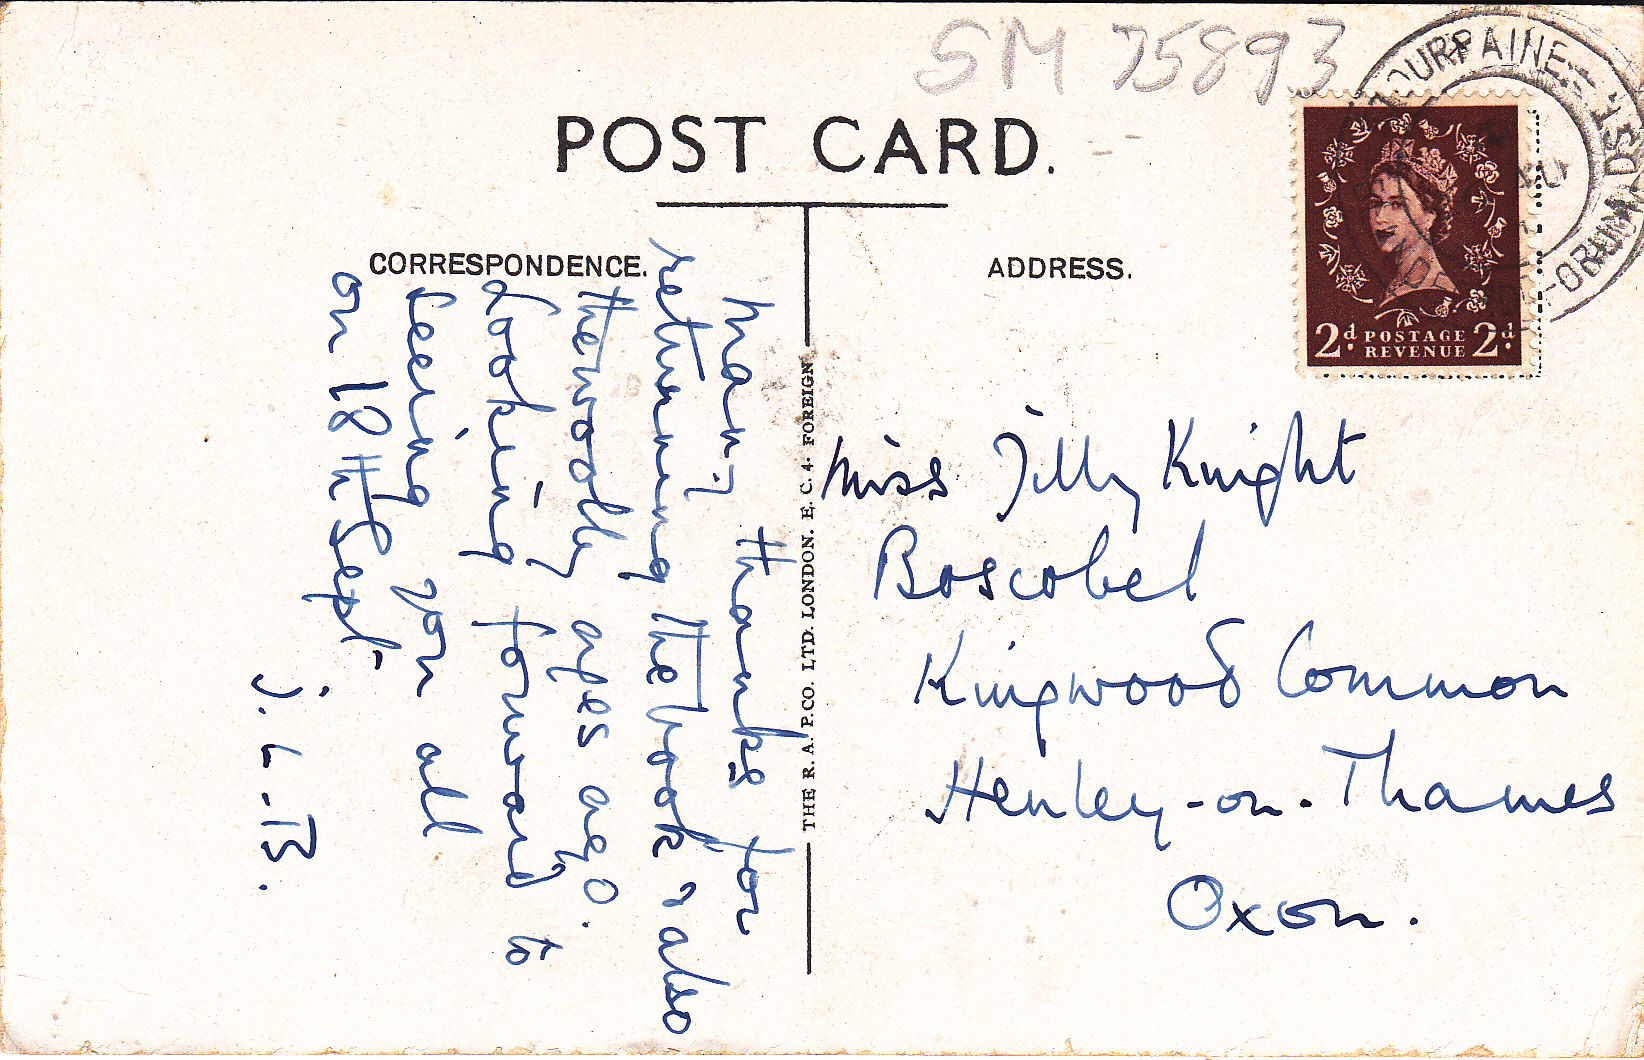 SM 75893
POST CARD.
CORRESPONDENCE.
ADDRESS.
2d. POSTAGE REVENUE 2d.
Many thanks for
returning the book & also
the woolly ages ago.
Looking forward to
seeing you all
on 18th Sept.
J. L. B.
THE R. A. P. CO. LTD. LONDON. E. C. 4. FOREIGN
Miss Jilly Knight
Boscobel
Kingwood Common
Henley-on-Thames
Oxon.